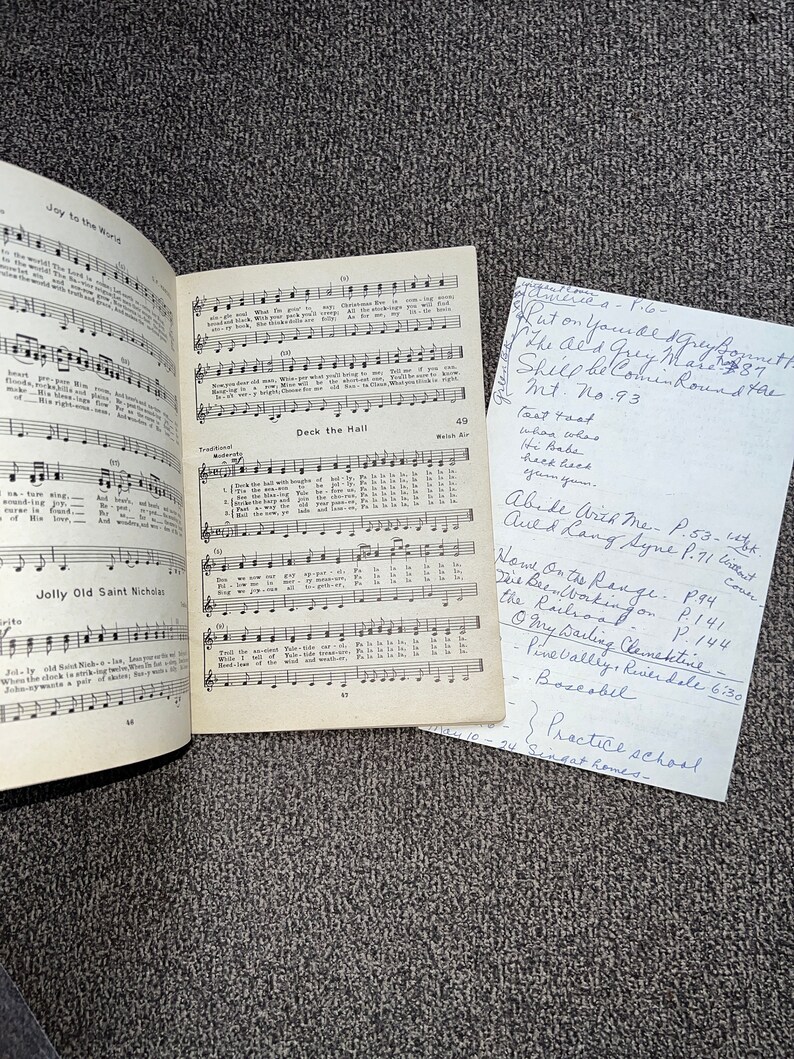 Joy to the World
to the world! The Lord is come; Let earth
to the world! The Sa-vior
rules the world with truth and grace, And
heart pre-pare Him room,
floods, rocks, hills and plains
make His bless-ings flow
of His right-eous-ness,
(17)
na-ture sing, And heav'n, and
sound-ing joy, Re-peat,
curse is found, Far as,
of His love, And wonders,
Jolly Old Saint Nicholas
Jol-ly old Saint Nich-o-las, Lean your ear this way!
When the clock is striking twelve, When I'm fast
John-ny wants a pair of skates; Su-sy wants a
46
(9)
sin-gle soul What I'm goin' to say; Christ-mas Eve is com-ing soon;
broad and black, With your pack you'll creep; All the stock-ings you will find
sto-ry book, She thinks dolls are folly; As for me, my lit-tle brain
(13)
Now, you dear old man, Whis-per what you'll bring to me; Tell me if you can.
Hang-ing in a row; Mine will be the short-est one, You'll be sure to know.
Is-n't ver-y bright; Choose for me old San-ta Claus, What you think is right.
Deck the Hall
49
Traditional
Welsh Air
Moderato
mf
1. Deck the hall with boughs of hol-ly, Fa la la la la, la la la la.
'Tis the sea-son to be jol-ly, Fa la la la la, la la la la.
2. See the blaz-ing Yule be-fore us, Fa la la la la, la la la la.
Strike the harp and join the cho-rus, Fa la la la la, la la la la.
3. Fast a-way the old year pass-es, Fa la la la la, la la la la.
Hail the new, ye lads and lass-es, Fa la la la la, la la la la.
(5)
Don we now our gay ap-par-el, Fa la la la la, la la la la.
Fol-low me in mer-ry meas-ure, Fa la la la la, la la la la.
Sing we joy-ous all to-geth-er, Fa la la la la, la la la la.
(9)
Troll the an-cient Yule-tide car-ol, Fa la la la la, la la la la.
While I tell of Yule-tide treas-ure, Fa la la la la, la la la la.
Heed-less of the wind and weath-er, Fa la la la la, la la la la.
47
America - P.6-
Put on Your Old Grey Bonnet
The Old Grey Mare 87
Shell be Comin Round the
Mt. No. 93
toot toot
whoa whoa
Hi Babe
hack hack
yum yum.
Abide With Me - P.53 - 1st bk.
Auld Lang Syne P.71 without cover -
Home On the Range - P.94
I've Been Working on P.141
the Railroad -
O My Darling Clementine - P.144
- Pine Valley, Riverdale 6:30
- Boscobel
} Practice school
May 10 - 24 Sing at homes -